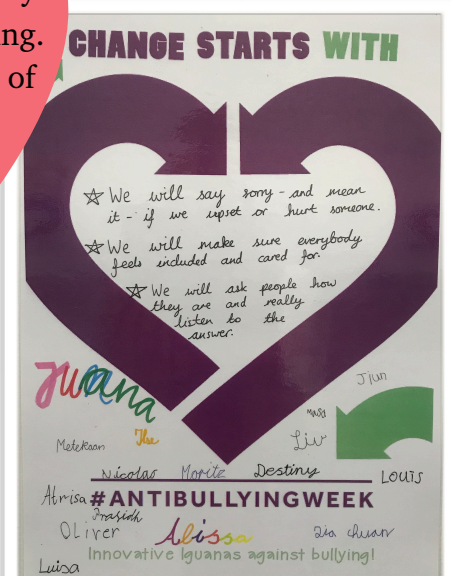 ng.
of
CHANGE STARTS WITH
☆ We will say sorry - and mean
it - if we upset or hurt someone.
☆ We will make sure everybody
feels included and cared for.
☆ We will ask people how
they are and really
listen to the
answer.
Juana
Jiun
Ilse
Liv
Nicolas Moritz Destiny
LOUIS
Atrisa #ANTIBULLYINGWEEK
Prasidh
OLiver Alissa Zia chuan
Innovative Iguanas against bullying!
Luisa